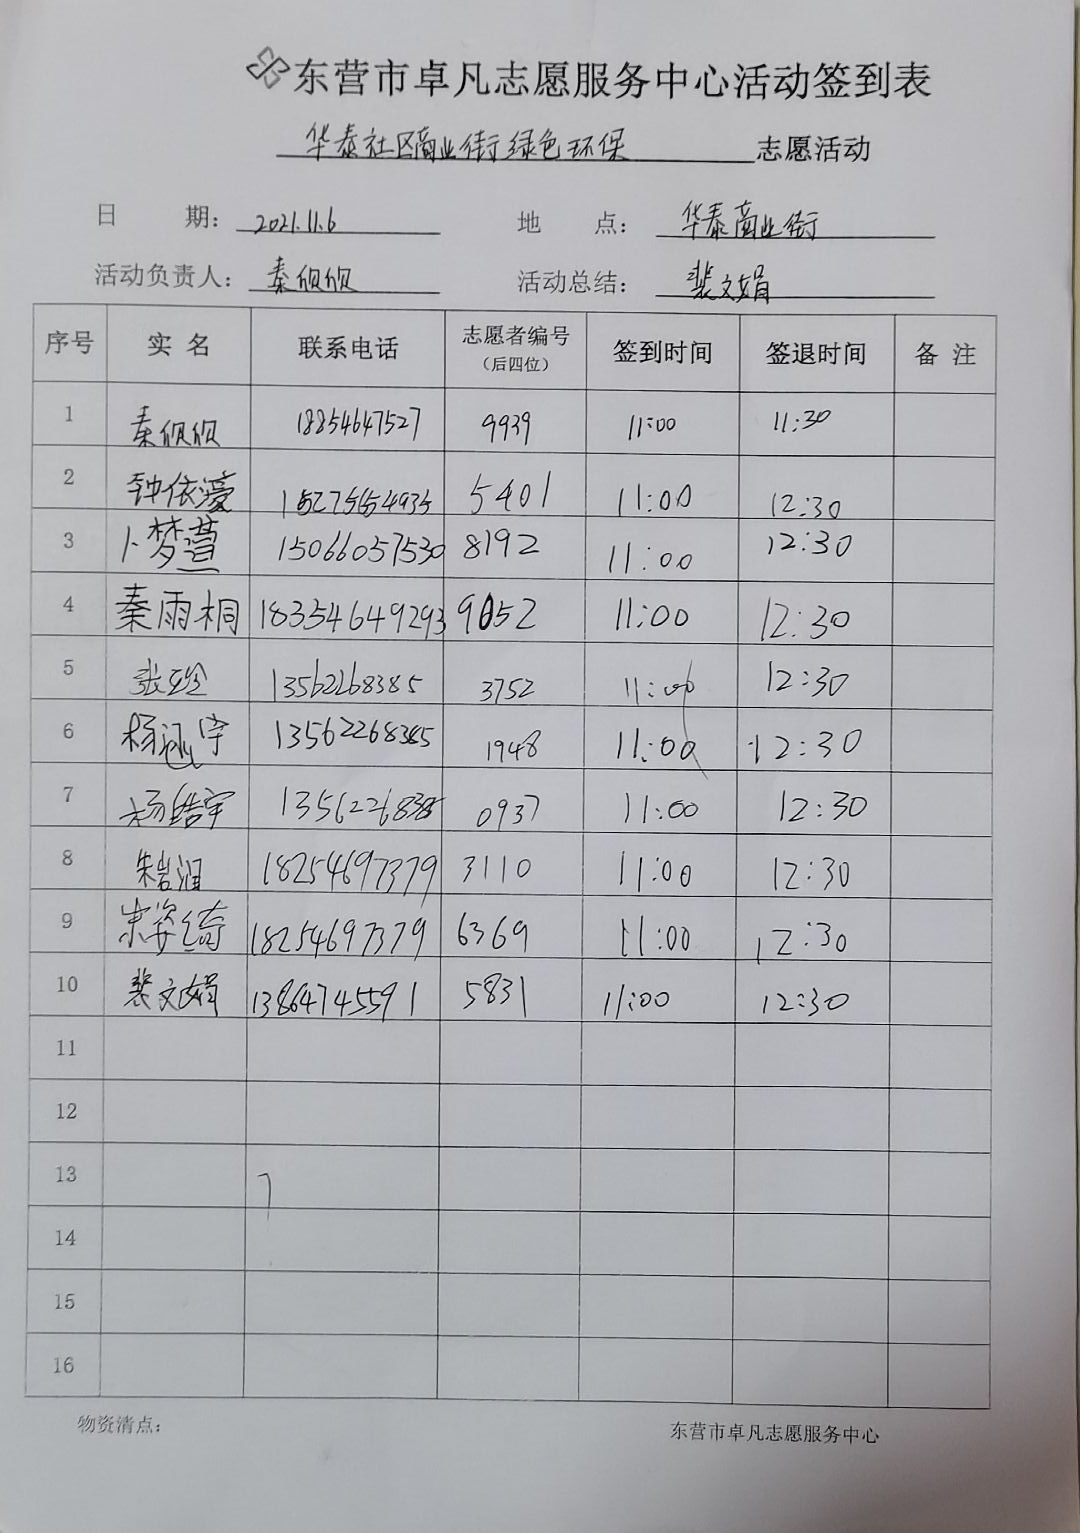 东营市卓凡志愿服务中心活动签到表
华泰社区商业街绿色环保 志愿活动
日 期： 2021.11.6 地 点： 华泰商业街
活动负责人： 秦 活动总结： 裴文娟
序号 实 名 联系电话 志愿者编号（后四位） 签到时间 签退时间 备 注
1 秦 18854647527 9939 11:00 11:30
2 钟依濠 5401 11:00 12:30
3 卜梦萱 15066057530 8192 11:00 12:30
4 秦雨桐 18354649293 9052 11:00 12:30
5 张 13562268385 3752 11:00 12:30
6 杨涵宇 13562268385 1948 11:00 12:30
7 杨皓宇 13562268385 0937 11:00 12:30
8 朱岩润 18254697379 3110 11:00 12:30
9 宋姿绮 18254697379 6369 11:00 12:30
10 裴文娟 13864745591 5831 11:00 12:30
11
12
13
14
15
16
物资清点： 东营市卓凡志愿服务中心